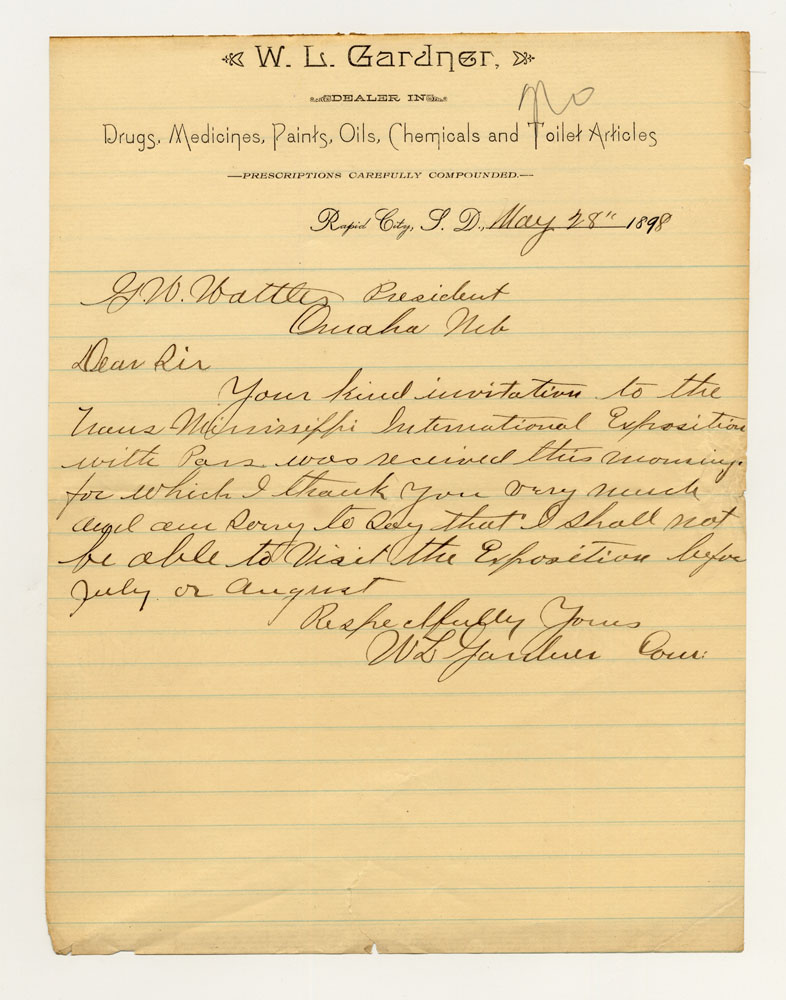 W. L. Gardner,
DEALER IN
No
Drugs, Medicines, Paints, Oils, Chemicals and Toilet Articles
—PRESCRIPTIONS CAREFULLY COMPOUNDED.—
Rapid City, S. D., May 28" 1898
G. W. Wattles President
Omaha Neb
Dear Sir
Your kind invitation to the
Trans Mississippi International Exposition
with Pass was received this morning.
for which I thank you very much
and am Sorry to Say that I shall not
be able to Visit the Exposition before
July or August
Respectfully Yours
WL Gardner Com: